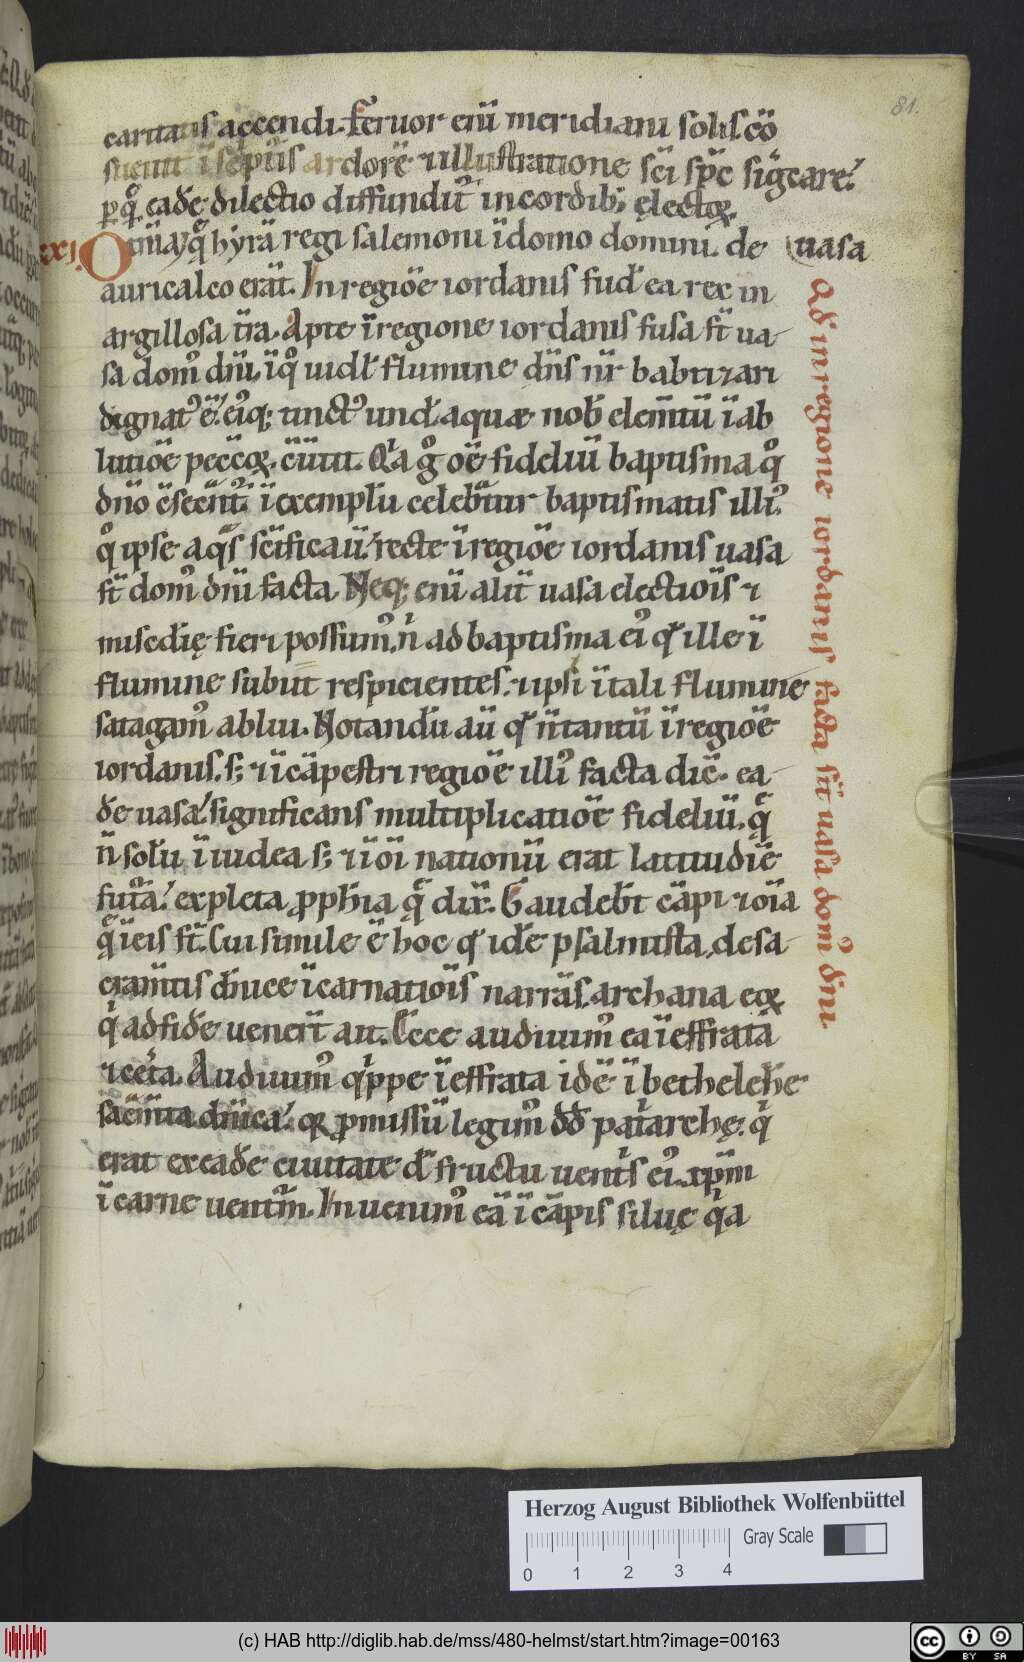 81.
caritatis accendi. Feruor eni̅ meridiani solis co̅
sueuit i̅ sc̅pturis ardore̅ ⁊ illustratione sc̅i sp̅c sig̅care.
p̲ qͣ̅ cade̅ dilectio diffundit᷑ in cordib; electoꝝ
xxi. Omi̅a, q̅ hyra̅ regi salemoni i̅ domo domini. de uasa
auricalco era̅t. In regio̅e iordanis fud̅ ea rex in
argillosa t̅ra. Apte i̅ regione iordanis fusa st̅ ua
sa domꝰ dn̅i, i̅ qͦ uidl̅ flumine dn̅s nr̅ babtizari
dignatꝰ e̅. eiꝰq; tinctꝰ und̅ aquæ nob̅ elem̅tu̅ i̅ ab
lutio̅e pecc̅oꝝ. Qͥa g̊ o̅e fideliu̅ baptisma qͦ
dn̅o i̅ exemplu̅ celebr̅atur baptismatis illiꝰ
qͦ ipse aqͣs sc̅ificau̅. recte i̅ regio̅e iordanis uasa
st̅ domꝰ dn̅i facta. Neq; eni̅ alit̅ uasa electio̅is ⁊
mise̅die̜ fieri possumꝰ, nͥ ad baptisma eiꝰ qd̅ ille i̅
flumine subiit respicientes, ⁊ ipsi i̅ tali flumine
satagamꝰ ablui. Notandu̅ au̅ qd̅ n̅ tantu̅ i̅ regio̅e
iordanis, s; ⁊ i̅ ca̅pestri regio̅e illiꝰ facta dic̅. ea
de uasa. significans multiplicatio̅e fideliu̅. q̅
n̅ solu̅ i̅ iudea s; ⁊ i̅ o̅i nationu̅ erat latitudi̅e
futͣa. expleta p̲ph̅ia q̅ dix̅. Gaudeb̅t ca̅pi ⁊ o̅ia
q̅ i̅ eis st̅. Cui simile e̅ hoc qd̅ ide̅ psalmista, de sa
cram̅tis d̅nice i̅carnatio̅is narra̅s, archana eoꝝ
qͥ ad fide̅ uener̅t ait. Ecce audiuimꝰ ea̅ i̅ effrata
⁊ cet̅a. Audiuimꝰ qͥppe i̅ effrata ide̅ i̅ bethelehe̅
sac̅m̅ta d̅nica. p̲missu̅ legimꝰ dd̅ patͥarche̜. qͥ
erat ex eade̅ ciuitate d̅ fructu uent̅s eiꝰ. xp̅m
i̅ carne uentu̅m. Inuenimꝰ ea̅ i̅ ca̅pis silue̜ qͥa
Qd̅ in regione iordanis facta si̅t uasa domꝰ dn̅i.
Herzog August Bibliothek Wolfenbüttel
Gray Scale
0 1 2 3 4
(c) HAB http://diglib.hab.de/mss/480-helmst/start.htm?image=00163
cc BY SA